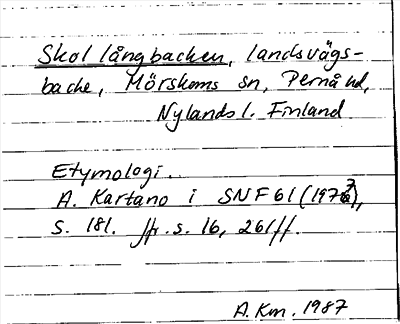 Skollångbacken, landsvägs-
backe, Mörskoms sn, Pernå hd,
Nylands l. Finland
Etymologi.
A. Kartano i SNF 61 (1973),
s. 181. Jfr. s. 16, 261 ff.
A. Km. 1987